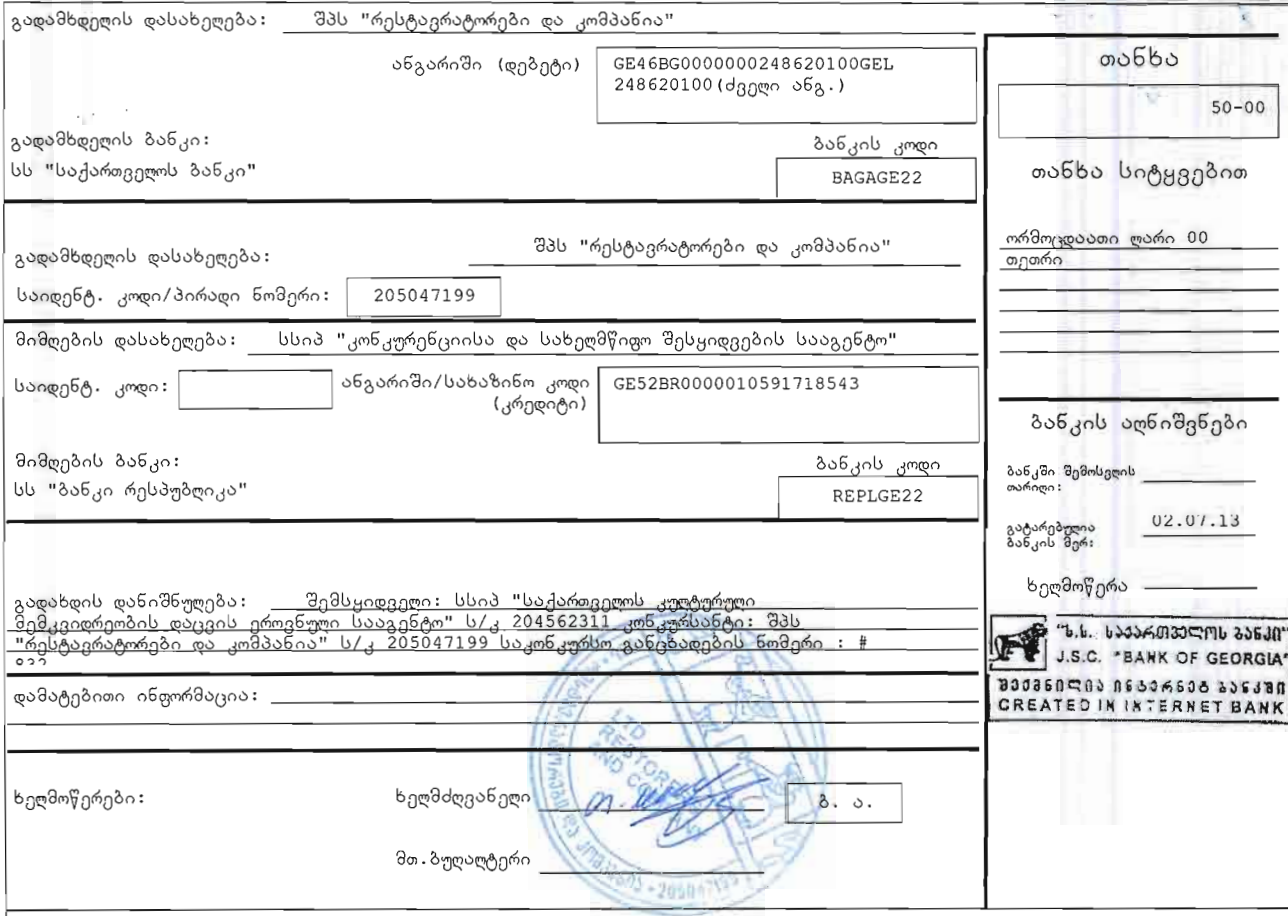 გადამხდელის დასახელება: შპს "რესტავრატორები და კომპანია"
ანგარიში (დებეტი) GE46BG0000000248620100GEL
248620100(ძველი ანგ.)
გადამხდელის ბანკი: ბანკის კოდი
სს "საქართველოს ბანკი" BAGAGE22
გადამხდელის დასახელება: შპს "რესტავრატორები და კომპანია"
საიდენტ. კოდი/პირადი ნომერი: 205047199
მიმღების დასახელება: სსიპ "კონკურენციისა და სახელმწიფო შესყიდვების სააგენტო"
საიდენტ. კოდი: ანგარიში/სახაზინო კოდი GE52BR0000010591718543
(კრედიტი)
მიმღების ბანკი: ბანკის კოდი
სს "ბანკი რესპუბლიკა" REPLGE22
გადახდის დანიშნულება: შემსყიდველი: სსიპ "საქართველოს კულტურული
მემკვიდრეობის დაცვის ეროვნული სააგენტო" ს/კ 204562311 კონკურსანტი: შპს
"რესტავრატორები და კომპანია" ს/კ 205047199 საკონკურსო განცხადების ნომერი : #
დამატებითი ინფორმაცია:
ხელმოწერები: ხელმძღვანელი ბ. ა.
მთ.ბუღალტერი
თანხა
50-00
თანხა სიტყვებით
ორმოცდაათი ლარი 00
თეთრი
ბანკის აღნიშვნები
ბანკში შემოსვლის
თარიღი:
გატარებულია 02.07.13
ბანკის მერ:
ხელმოწერა
"ს.ს. საქართველოს ბანკი"
J.S.C. "BANK OF GEORGIA"
შექმნილია ინტერნეტ ბანკში
CREATED IN INTERNET BANK
LTD
RESTORERS
AND COMPANY
205047199